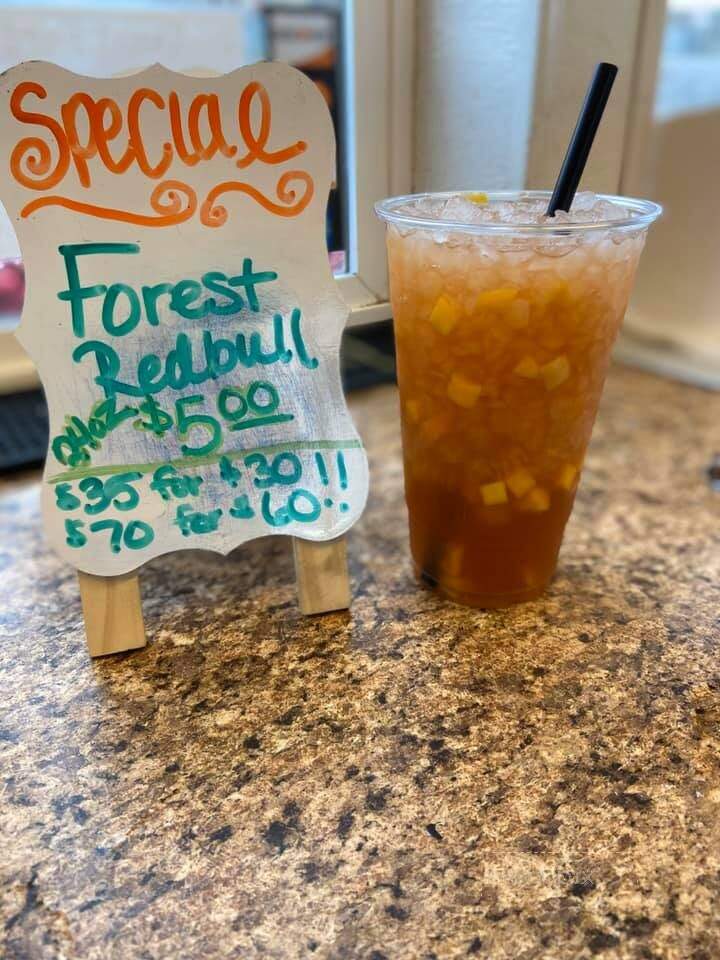 Special
Forest
Redbull
24oz $5.00
$35 for $30!!
$70 for $60!!